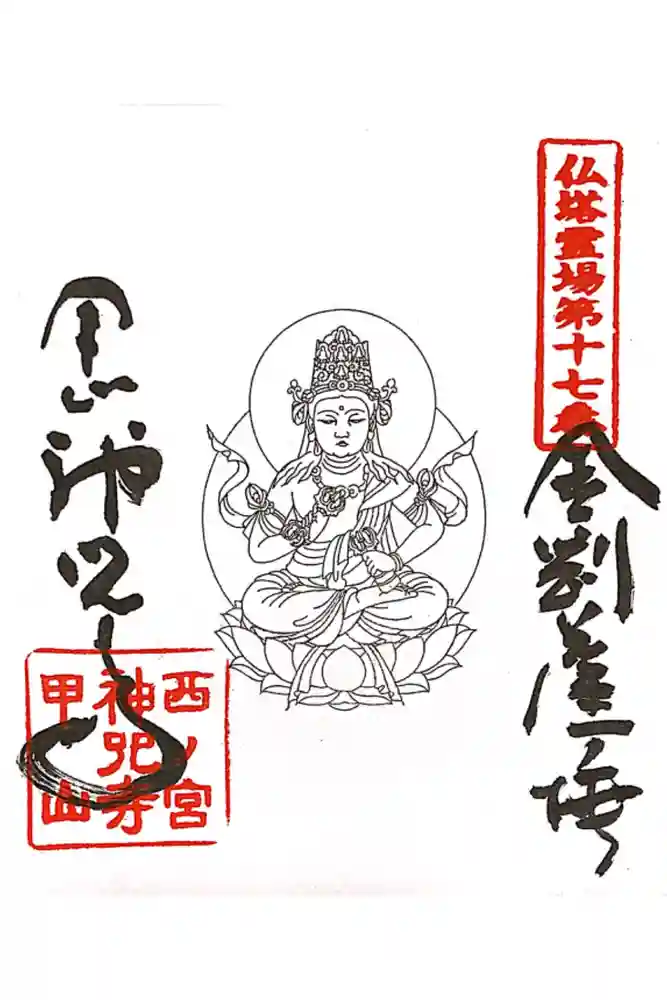 仏塔霊場第十七番
金剛薩埵
甲山
神呪寺
西ノ宮
甲山
神呪寺